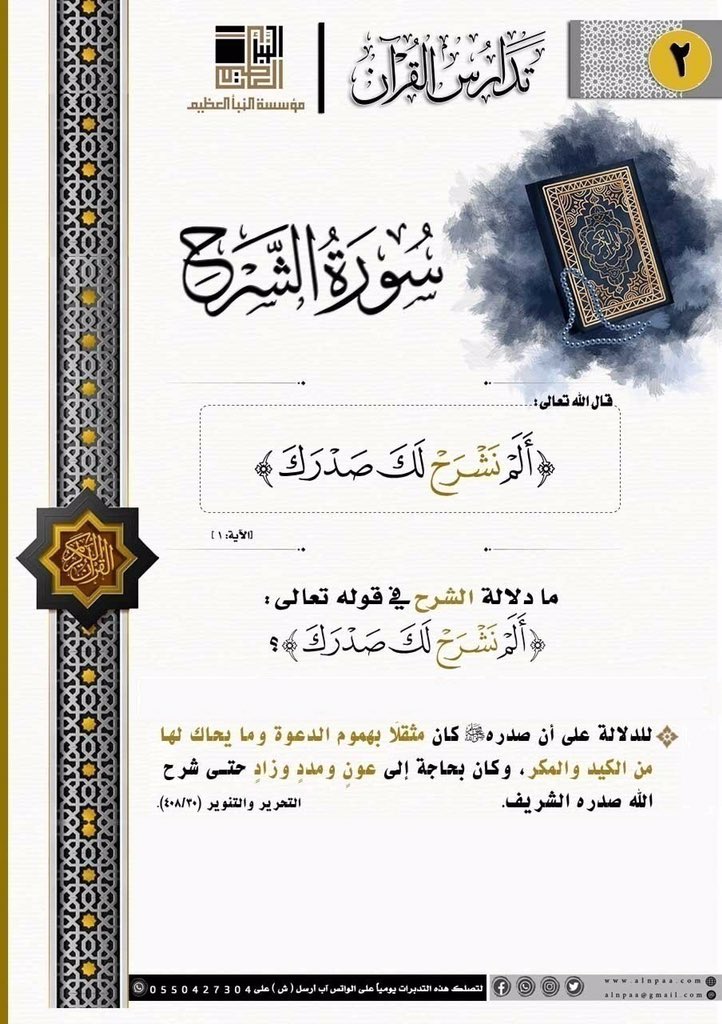 ٢
تَدَارُس القُرآن
النبأ العظيم
مؤسسة النبأ العظيم
سُورَةُ الشَّرْحِ
قال الله تعالى:
﴿أَلَمْ نَشْرَحْ لَكَ صَدْرَكَ﴾
[الآية: ١]
القرآن الكريم
ما دلالة الشرح في قوله تعالى:
﴿أَلَمْ نَشْرَحْ لَكَ صَدْرَكَ﴾؟
للدلالة على أن صدره ﷺ كان مثقلًا بهموم الدعوة وما يحاك لها
من الكيد والمكر، وكان بحاجة إلى عونٍ ومددٍ وزادٍ حتى شرح
الله صدره الشريف. التحرير والتنوير (٤٠٨/٣٠).
لتصلك هذه التدبرات يومياً على الواتس آب أرسل (ش) على 0550427304
www.alnpaa.com
alnpaa@gmail.com